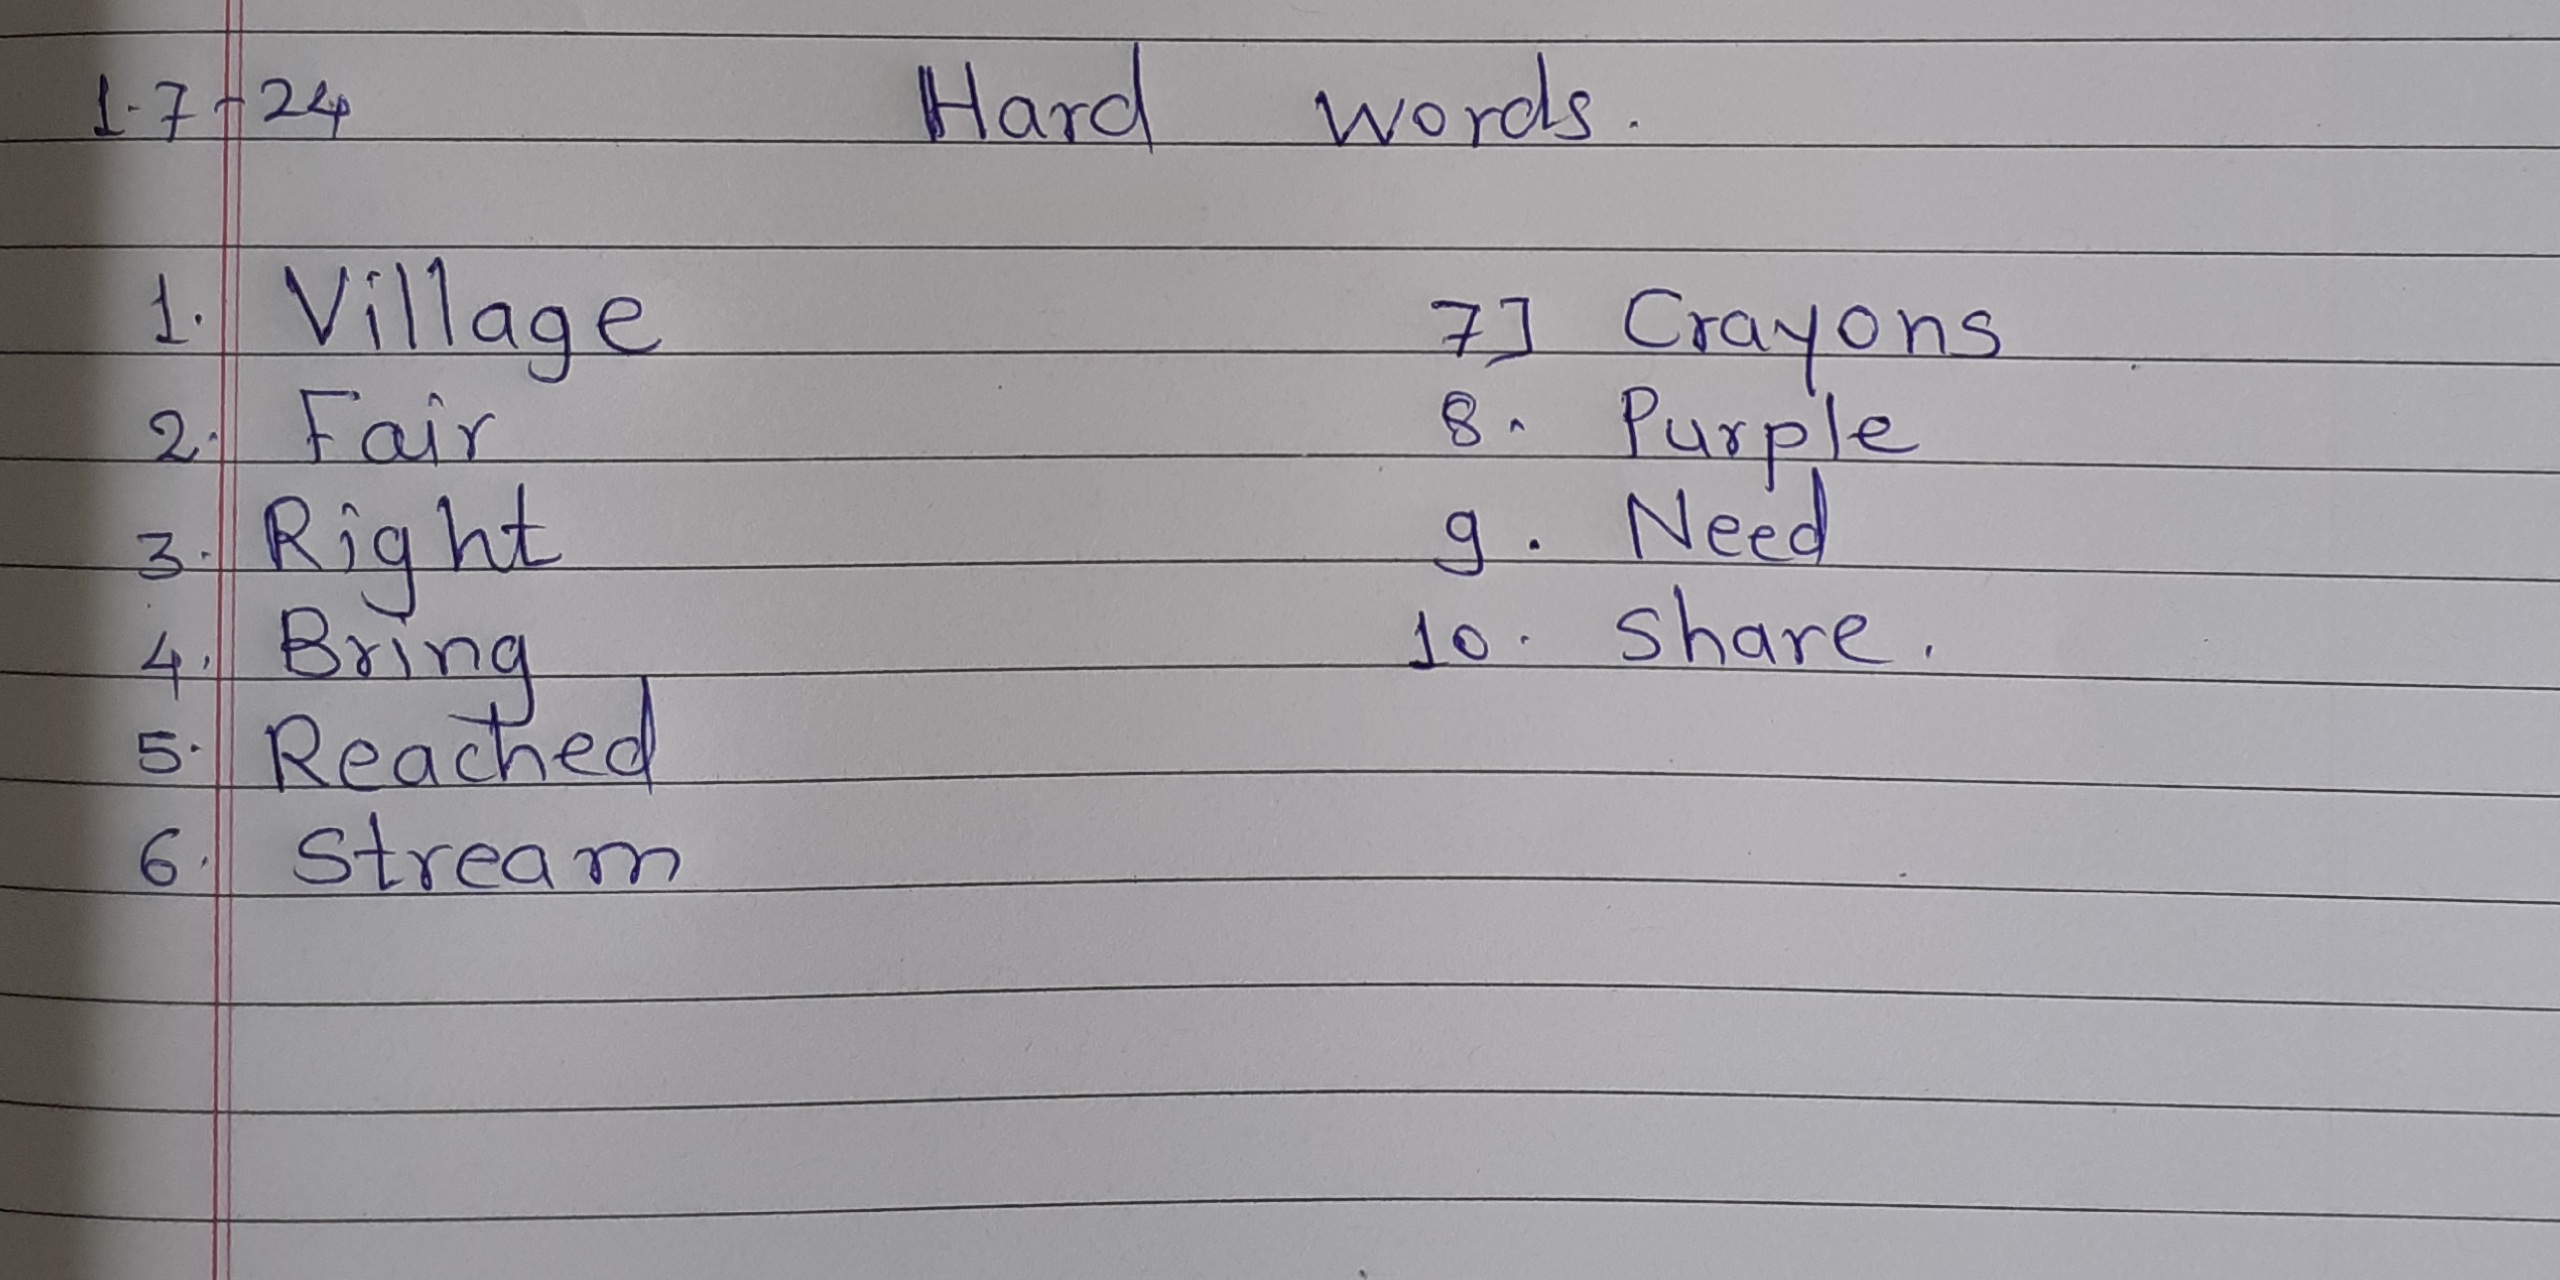 1-7-24 Hard words.
1. Village
2. Fair
3. Right
4. Bring
5. Reached
6. Stream
7] Crayons
8. Purple
9. Need
10. Share.